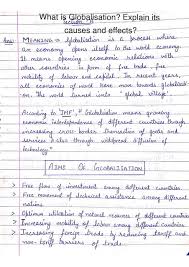 What is Globalisation? Explain its
causes and effects?
Ans: MEANING → Globalisation is a process where
an economy opens itself to the world economy.
It means opening economic relations with
other countries in form of free trade, free
mobility of labor and capital. In recent years,
all economies of world have now more globalisat-
on. The world turned into a 'global village'.
According to "IMF," "Globalisation means growing
economic interdependence of different countries through
increasing cross-border transaction of goods and
services & also through widespread diffusion of
technology"
AIMS OF GLOBALISATION
> Free flow of investment among different countries
> Free movement of technical assistance among different
nations.
> Optimum utilization of natural resources of different countries
> Increasing mobility of labor among different countries
> Increasing foreign trade by reducing tariff and
non-tariff barriers of trade.